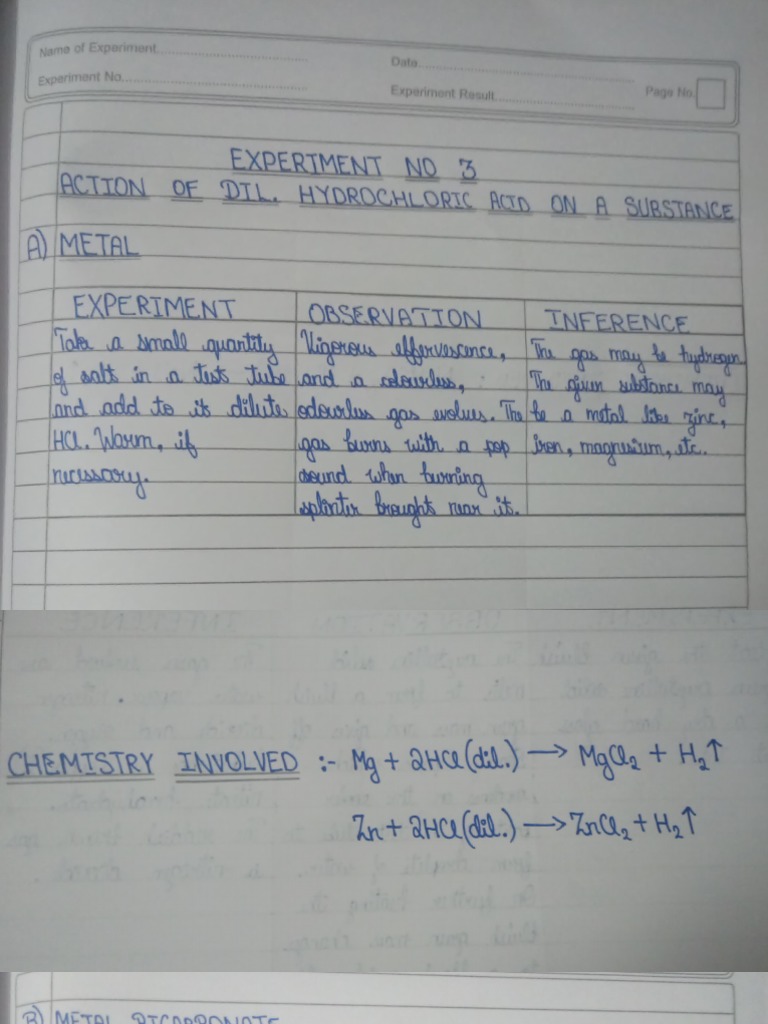 Name of Experiment
Date
Experiment No.
Experiment Result
Page No.
EXPERIMENT NO 3
ACTION OF DIL. HYDROCHLORIC ACID ON A SUBSTANCE
A) METAL
EXPERIMENT
Take a small quantity
of salts in a test tube
and add to it dilute
HCl. Warm, if
necessary.
OBSERVATION
Vigorous effervescence,
and a colourless,
odourless gas evolves. The
gas burns with a pop
sound when burning
splinter brought near it.
INFERENCE
The gas may be hydrogen
The given substance may
be a metal like zinc,
iron, magnesium, etc.
CHEMISTRY INVOLVED :- Mg + 2HCl(dil.) → MgCl₂ + H₂↑
Zn + 2HCl(dil.) → ZnCl₂ + H₂↑
B) METAL BICARBONATE